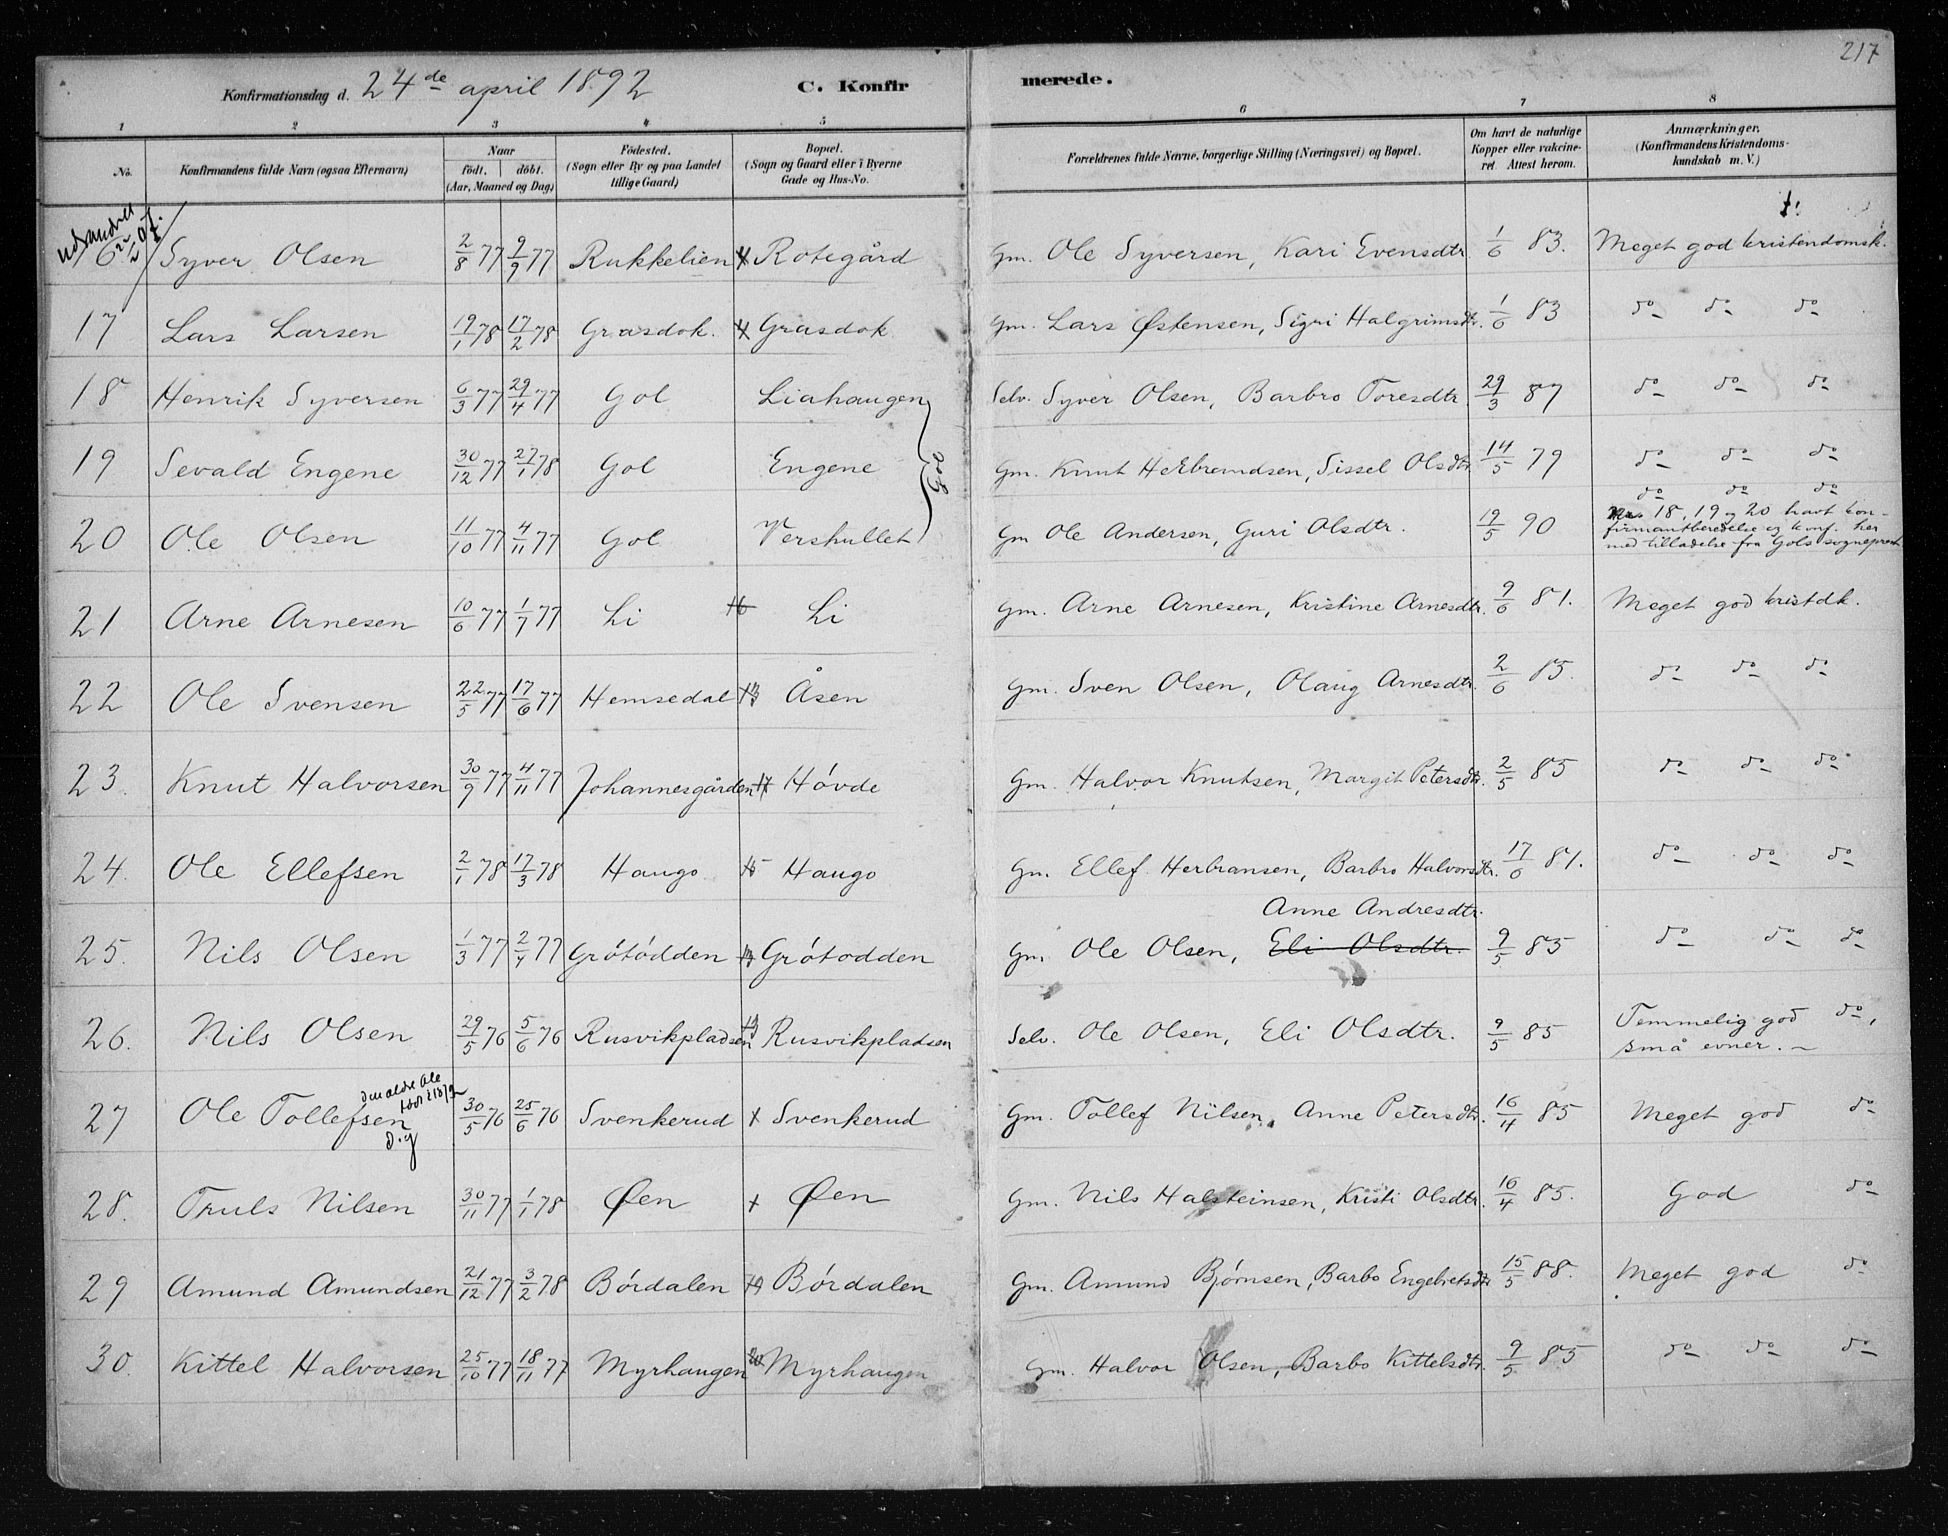 217
Konfirmationsdag d. 24de april 1892 C. Konfirmerede.
1 2 3 4 5 6 7 8
No. Konfirmandens fulde Navn (ogsaa Efternavn) Naar født. døbt. (Aar, Maaned og Dag) Födested. (Sogn eller By og paa Landet tillige Gaard) Bopæl. (Sogn og Gaard eller i Byerne Gade og Hus-No. Forældrenes fulde Navne, borgerlige Stilling (Næringsvei) og Bopæl. Om havt de naturlige Kopper eller vakcineret Attest herom. Anmærkninger. (Konfirmandens Kristendomskundskab m. V.)
udvandret 22/2 07.
16 Syver Olsen 2/8 77 9/9 77 Rukkelien Rotegård Gm. Ole Syversen, Kari Evensdtr. 1/6 83. Meget god kristendomsk.
17 Lars Larsen 19/1 78 17/2 78 Grasdok. Grasdok Gm. Lars Østensen, Sigri Halgrimsdtr. 1/6 83 do do do
18 Henrik Syversen 6/3 77 29/4 77 Gol Liahaugen Selv. Syver Olsen, Barbro Toresdtr. 29/3 87 do do do
19 Sevald Engene 30/12 77 27/1 78 Gol Engene Gol Gm. Knut Herbrandsen, Sissel Olsdtr. 14/5 79 do do do
do do do
20 Ole Olsen 11/10 77 4/11 77 Gol Vershullet Gm Ole Andersen, Guri Olsdtr. 19/5 90 No. 18, 19 og 20 havt konfirmantberedelse og konf. her med tilladelse fra Gols sogneprest
21 Arne Arnesen 10/6 77 1/7 77 Li 16 Li Gm. Arne Arnesen, Kristine Arnesdtr. 9/6 81. Meget god kristdk.
22 Ole Svensen 22/5 77 17/6 77 Hemsedal Åsen Gm. Sven Olsen, Olaug Arnesdtr. 2/6 85. do do do
23. Knut Halvorsen 30/9 77 4/11 77 Johannesgården Hóvde Gm. Halvor Knutsen, Margit Petersdtr. 2/5 85 do do do
24. Ole Ellefsen 2/1 78 17/3 78 Haugo Haugo Gm. Ellef Herbransen, Barbro Halvorsdtr. 17/6 81. do do do
Anne Andresdtr.
25. Nils Olsen 1/3 77 2/4 77 Grótódden Grótodden Gm. Ole Olsen, Eli Olsdtr. 9/5 85 do do do
26. Nils Olsen 29/5 76 5/6 76 Rusvikpladsen Rusvikpladsen Selv. Ole Olsen, Eli Olsdtr. 9/5 85 Temmelig god do, små evner. –
den ældre Ole født i 1872
27 Ole Tollefsen d.y 30/5 76 25/6 76 Svenkerud Svenkerud Gm. Tollef Nilsen, Anne Petersdtr. 16/4 85 Meget god do
28. Truls Nilsen 30/11 77 1/1 78 Øen Øen Gm. Nils Halsteinsen, Kristi Olsdtr. 16/4 85. God do
29 Amund Amundsen 21/12 77 3/2 78 Bórdalen 19 Bórdalen Gm. Amund Bjørnsen, Barbo Engebretsdtr. 15/5 88. Meget god do
30. Kittel Halvorsen 25/10 77 18/11 77 Myrhaugen 20 Myrhaugen Gm. Halvor Olsen, Barbo Kittelsdtr. 9/5 85 do do do